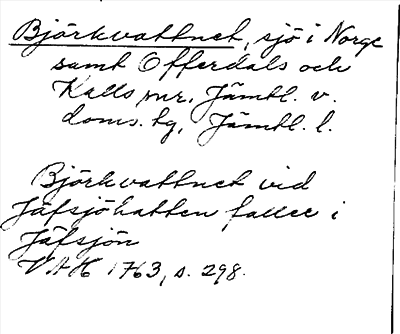 Björkvattnet, sjö i Norge
samt Offerdals och
Kalls snr, Jämtl. v.
doms. tg, Jämtl. l.
Björkvattnet vid
Jäfsjöhatten faller i
Jäfsjön
VAH 1763, s. 298.